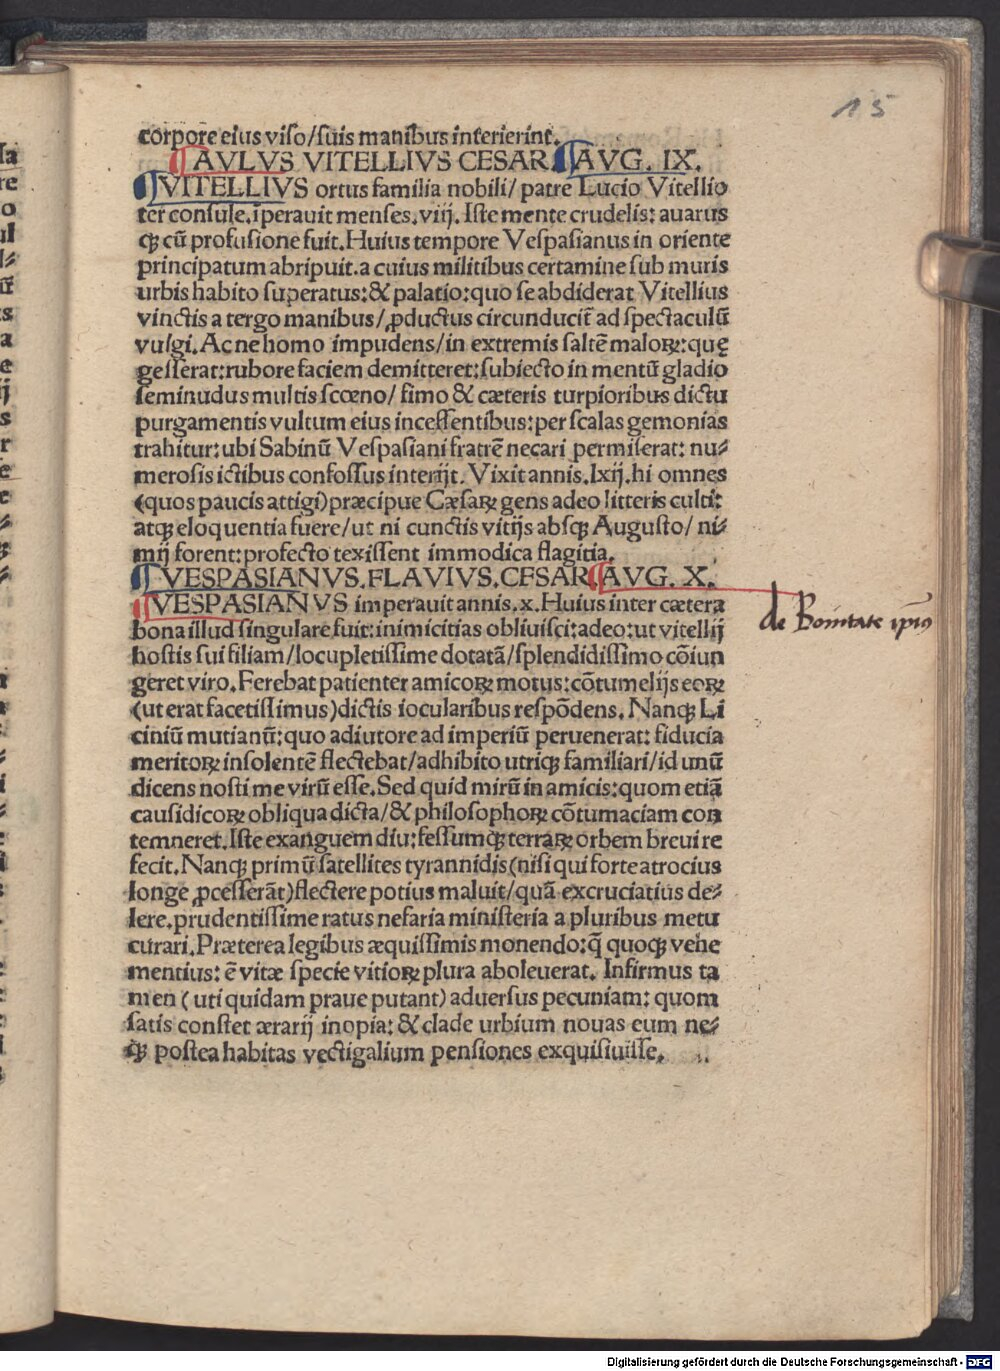 15
corpore eius viso/suis manibus interierint.
¶AVLVS VITELLIVS CESAR.¶AVG. IX.
¶VITELLIVS ortus familia nobili/ patre Lucio Vitellio
ter consule.īperauit menses.viij. Iste mente crudelis: auarus
qꝫ cū profusione fuit.Huius tempore Vespasianus in oriente
principatum abripuit.a cuius militibus certamine sub muris
urbis habito superatus:& palatio:quo se abdiderat Vitellius
vinctis a tergo manibus/ꝓductus circunducit̃ ad spectaculū
vulgi.Ac ne homo impudens/in extremis saltē maloꝝ:quę
gesserat:rubore faciem demitteret:subiecto in mentū gladio
seminudus multis scœno/ fimo & cæteris turpioribus dictu
purgamentis vultum eius incessentibus:per scalas gemonias
trahitur:ubi Sabinū Vespasiani fratrē necari permiserat: nu⸗
merosis ictibus confossus interijt. Vixit annis.lxij.hi omnes
(quos paucis attigi)præcipue Cæsaꝝ gens adeo litteris culti:
atqꝫ eloquentia fuere/ut ni cunctis vitijs absqꝫ Augusto/ ni⸗
mij forent:profecto texissent immodica flagitia.
¶VESPASIANVS.FLAVIVS.CESAR.¶AVG. X.
¶VESPASIANVS imperauit annis.x.Huius inter cætera
bona illud singulare fuit:inimicitias obliuisci:adeo:ut vitellij
hostis sui filiam/locupletissime dotatā/splendidissimo cōiun
geret viro.Ferebat patienter amicoꝝ motus:cōtumelijs eoꝝ
(ut erat facetissimus)dictis iocularibus respōdens. Nanqꝫ Li
ciniū mutianū:quo adiutore ad imperiū peruenerat: fiducia
meritoꝝ insolentē flectebat/adhibito utriqꝫ familiari/id unū
dicens nosti me virū esse.Sed quid mirū in amicis:quom etiā
causidicoꝝ obliqua dicta/& philosophoꝝ cōtumaciam con
temneret.Iste exanguem diu:fessumqꝫ terraꝝ orbem brevi re
fecit.Nanqꝫ primū satellites tyrannidis(nisi qui forte atrocius
longe ꝓcesserāt)flectere potius maluit/quā excruciatius de⸗
lere.prudentissime ratus nefaria ministeria a pluribus metu
curari.Præterea legibus æquissimis monendo:q̄ quoqꝫ vehe
mentius: ē vitæ specie vitioꝝ plura aboleuerat. Infirmus ta
men ( uti quidam praue putant) aduersus pecuniam: quom
satis constet ærarij inopia: & clade urbium nouas eum ne⸗
qꝫ postea habitas vectigalium pensiones exquisiuisse.
de Bonitate ipius
Digitalisierung gefördert durch die Deutsche Forschungsgemeinschaft - DFG